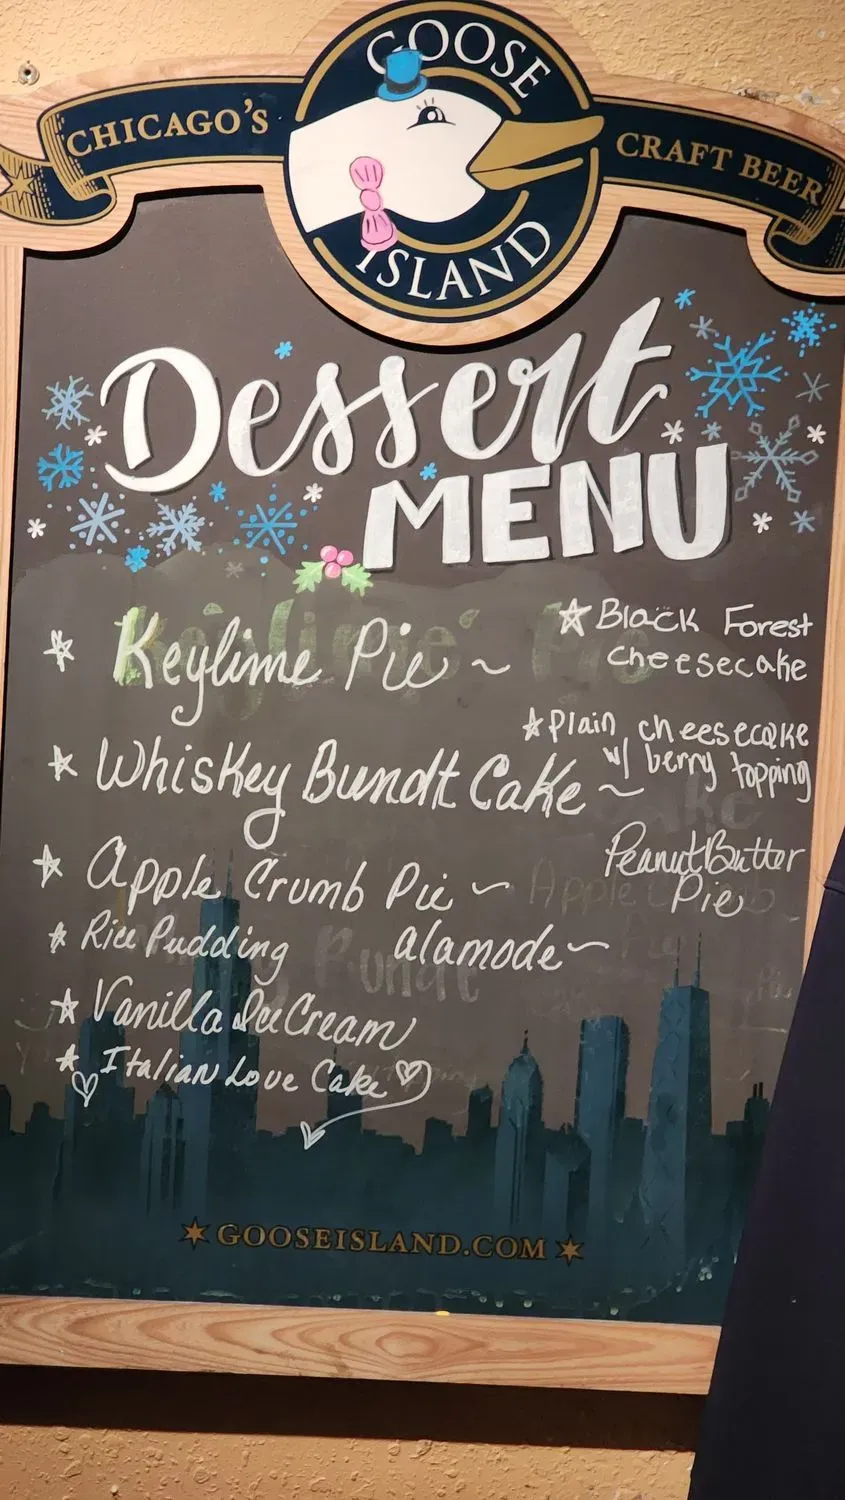 GOOSE
CHICAGO'S
CRAFT BEER
ISLAND
Dessert
MENU
Keylime Pie ~
Black Forest
cheesecake
Plain cheesecake
w/ berry topping
Whiskey Bundt Cake ~
Peanut Butter
Pie
Apple Crumb Pie ~
alamode ~
Rice Pudding
Vanilla Ice Cream
Italian Love Cake
GOOSEISLAND.COM